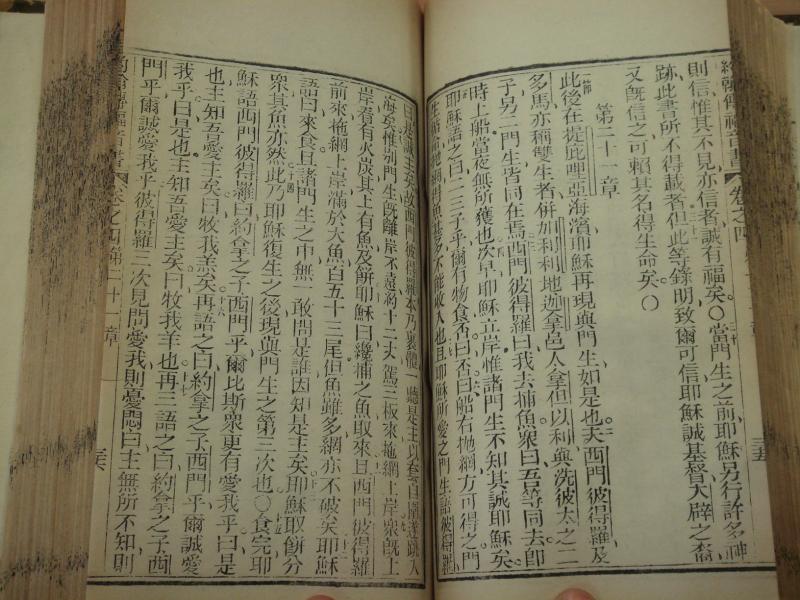 約翰傳福音書 卷之四
則信惟其不見亦信者誠有福矣〇當門生之前耶穌另行許多神
跡此書所不得載者但此等錄明致爾可信耶穌誠基督大辟之裔
又旣信之可賴其名得生命矣〇
第二十一章
此後在提庇哩亞海濱耶穌再現與門生如是也夫西門彼得羅及
多馬亦稱雙生者併加利利地迦拿邑人拿但以利與洗彼太之二
子另二門生皆同在焉西門彼得羅曰我去捕魚衆曰吾等同去卽
時上船當夜無所獲也次早耶穌立岸惟諸門生不知其誠耶穌矣
耶穌語之曰二三子乎爾有物食否曰否曰船右拋網方可得之門
生船拋網得魚甚多不能收入也且耶穌所愛之門生語彼得羅
曰是誠主矣故西門彼得羅本乃裸體一聽是主以套自圍遂跳入
海矣惟別門生旣離岸不遠約十三丈駕三板來拖網上岸衆旣上
岸看有火炭其上有魚及餅耶穌曰纔捕之魚取來且西門彼得羅
前來拖網上岸滿於大魚百五十三尾但魚雖多網亦不破矣耶穌
語曰來食且諸門生之中無一敢問是誰因知是主矣耶穌取餅分
衆其魚亦然此乃耶穌復生之後現與門生之第三次也〇食完耶
穌語西門彼得羅曰約拿之子西門乎爾比斯衆更有愛我乎曰是
也主知吾愛主矣曰牧我羔矣再語之曰約拿之子西門乎爾誠愛
我乎曰是也主知吾愛主矣曰牧我羊也再三語之曰約拿之子西
門乎爾誠愛我乎彼得羅三次見問愛我則憂悶曰主無所不知則
約翰傳福音書 卷之四 第二十一章